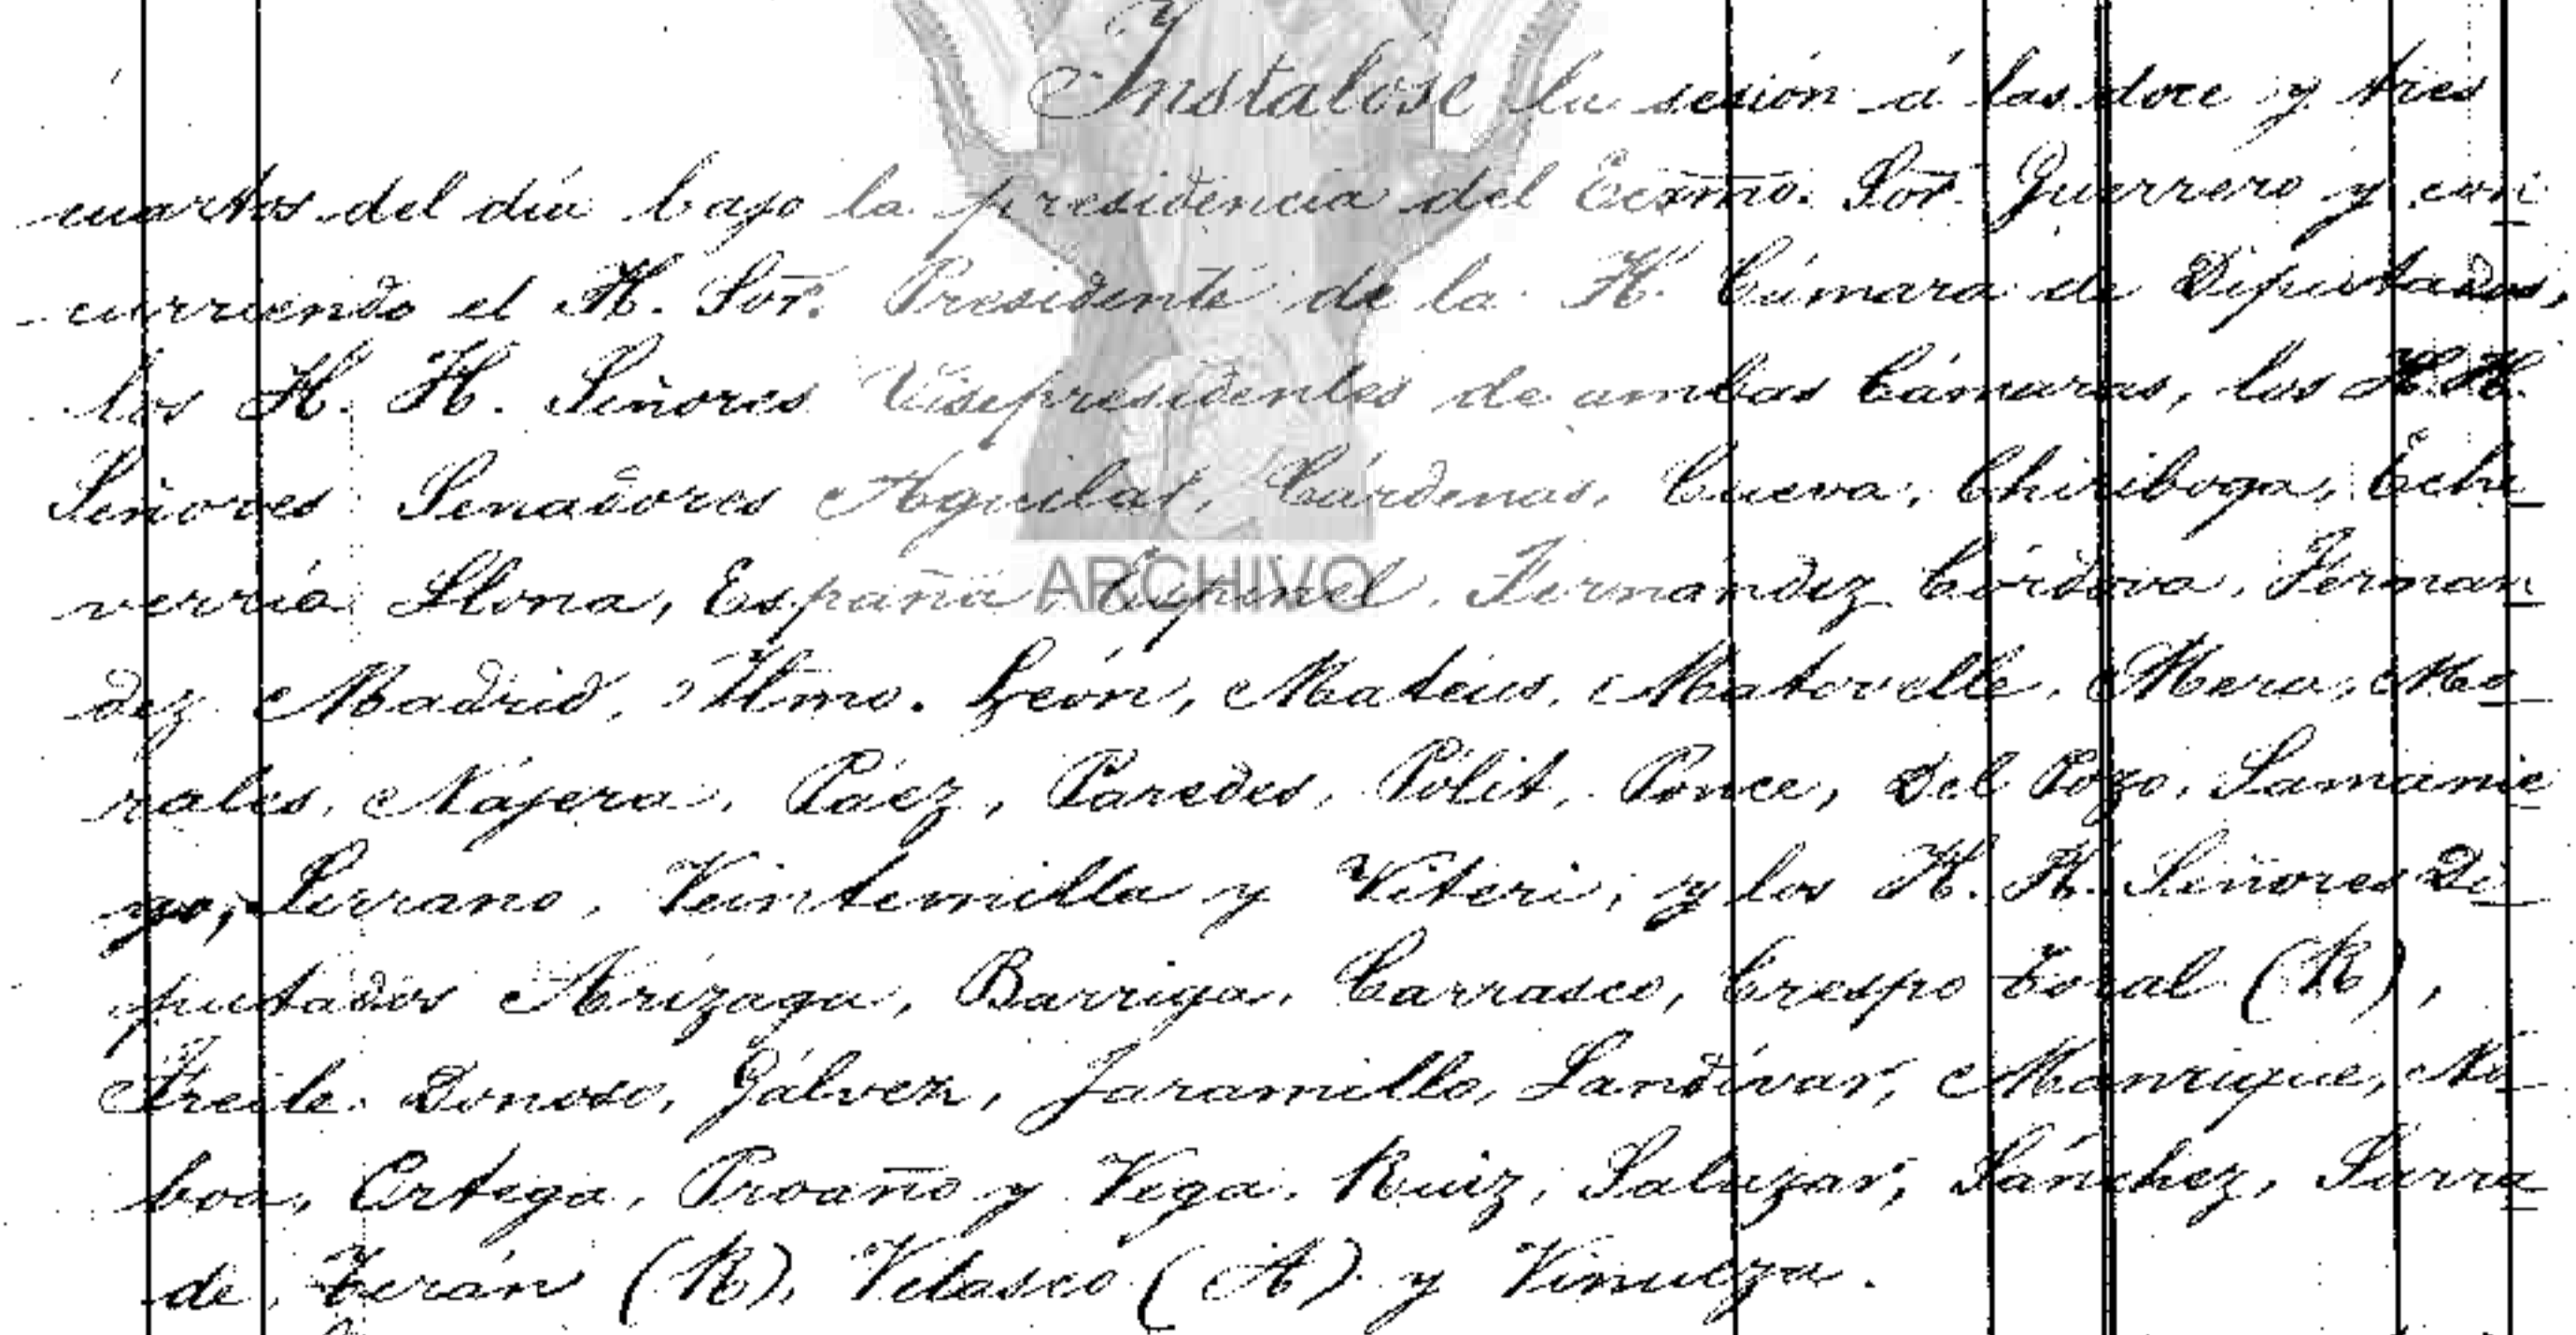 Instalóse la sesión á las doce y tres
cuartos del día bajo la presidencia del Ecxmo. Sor. Guerrero y con
curriendo el H. Sor. Presidente de la H. Cámara de Diputados,
los H. H. Señores Visepresidentes de ambas Cámaras, los H. H.
Señores Senadores Aguilar, Cárdenas, Cueva, Chiriboga, Eche
verría Llona, España, Espinel, Fernández Córdova, Fernan
dez Madrid, Iltmo. León, Mateus, Matovelle, Mera, Mo
rales, Nájera, Páez, Paredes, Pólit, Ponce, Del Pozo, Samanie
go, Serrano, Veintemilla y Viteri; y los H. H. Señores Di
putados Arízaga, Barriga, Carrasco, Crespo Toral (R),
Freile Donoso, Gálvez, Jaramillo, Landívar, Manrique, No
boa, Ortega, Proaño y Vega, Ruiz, Salazar, Sánchez, Sarra
de, Terán (R), Velasco (A) y Vinueza.
ARCHIVO